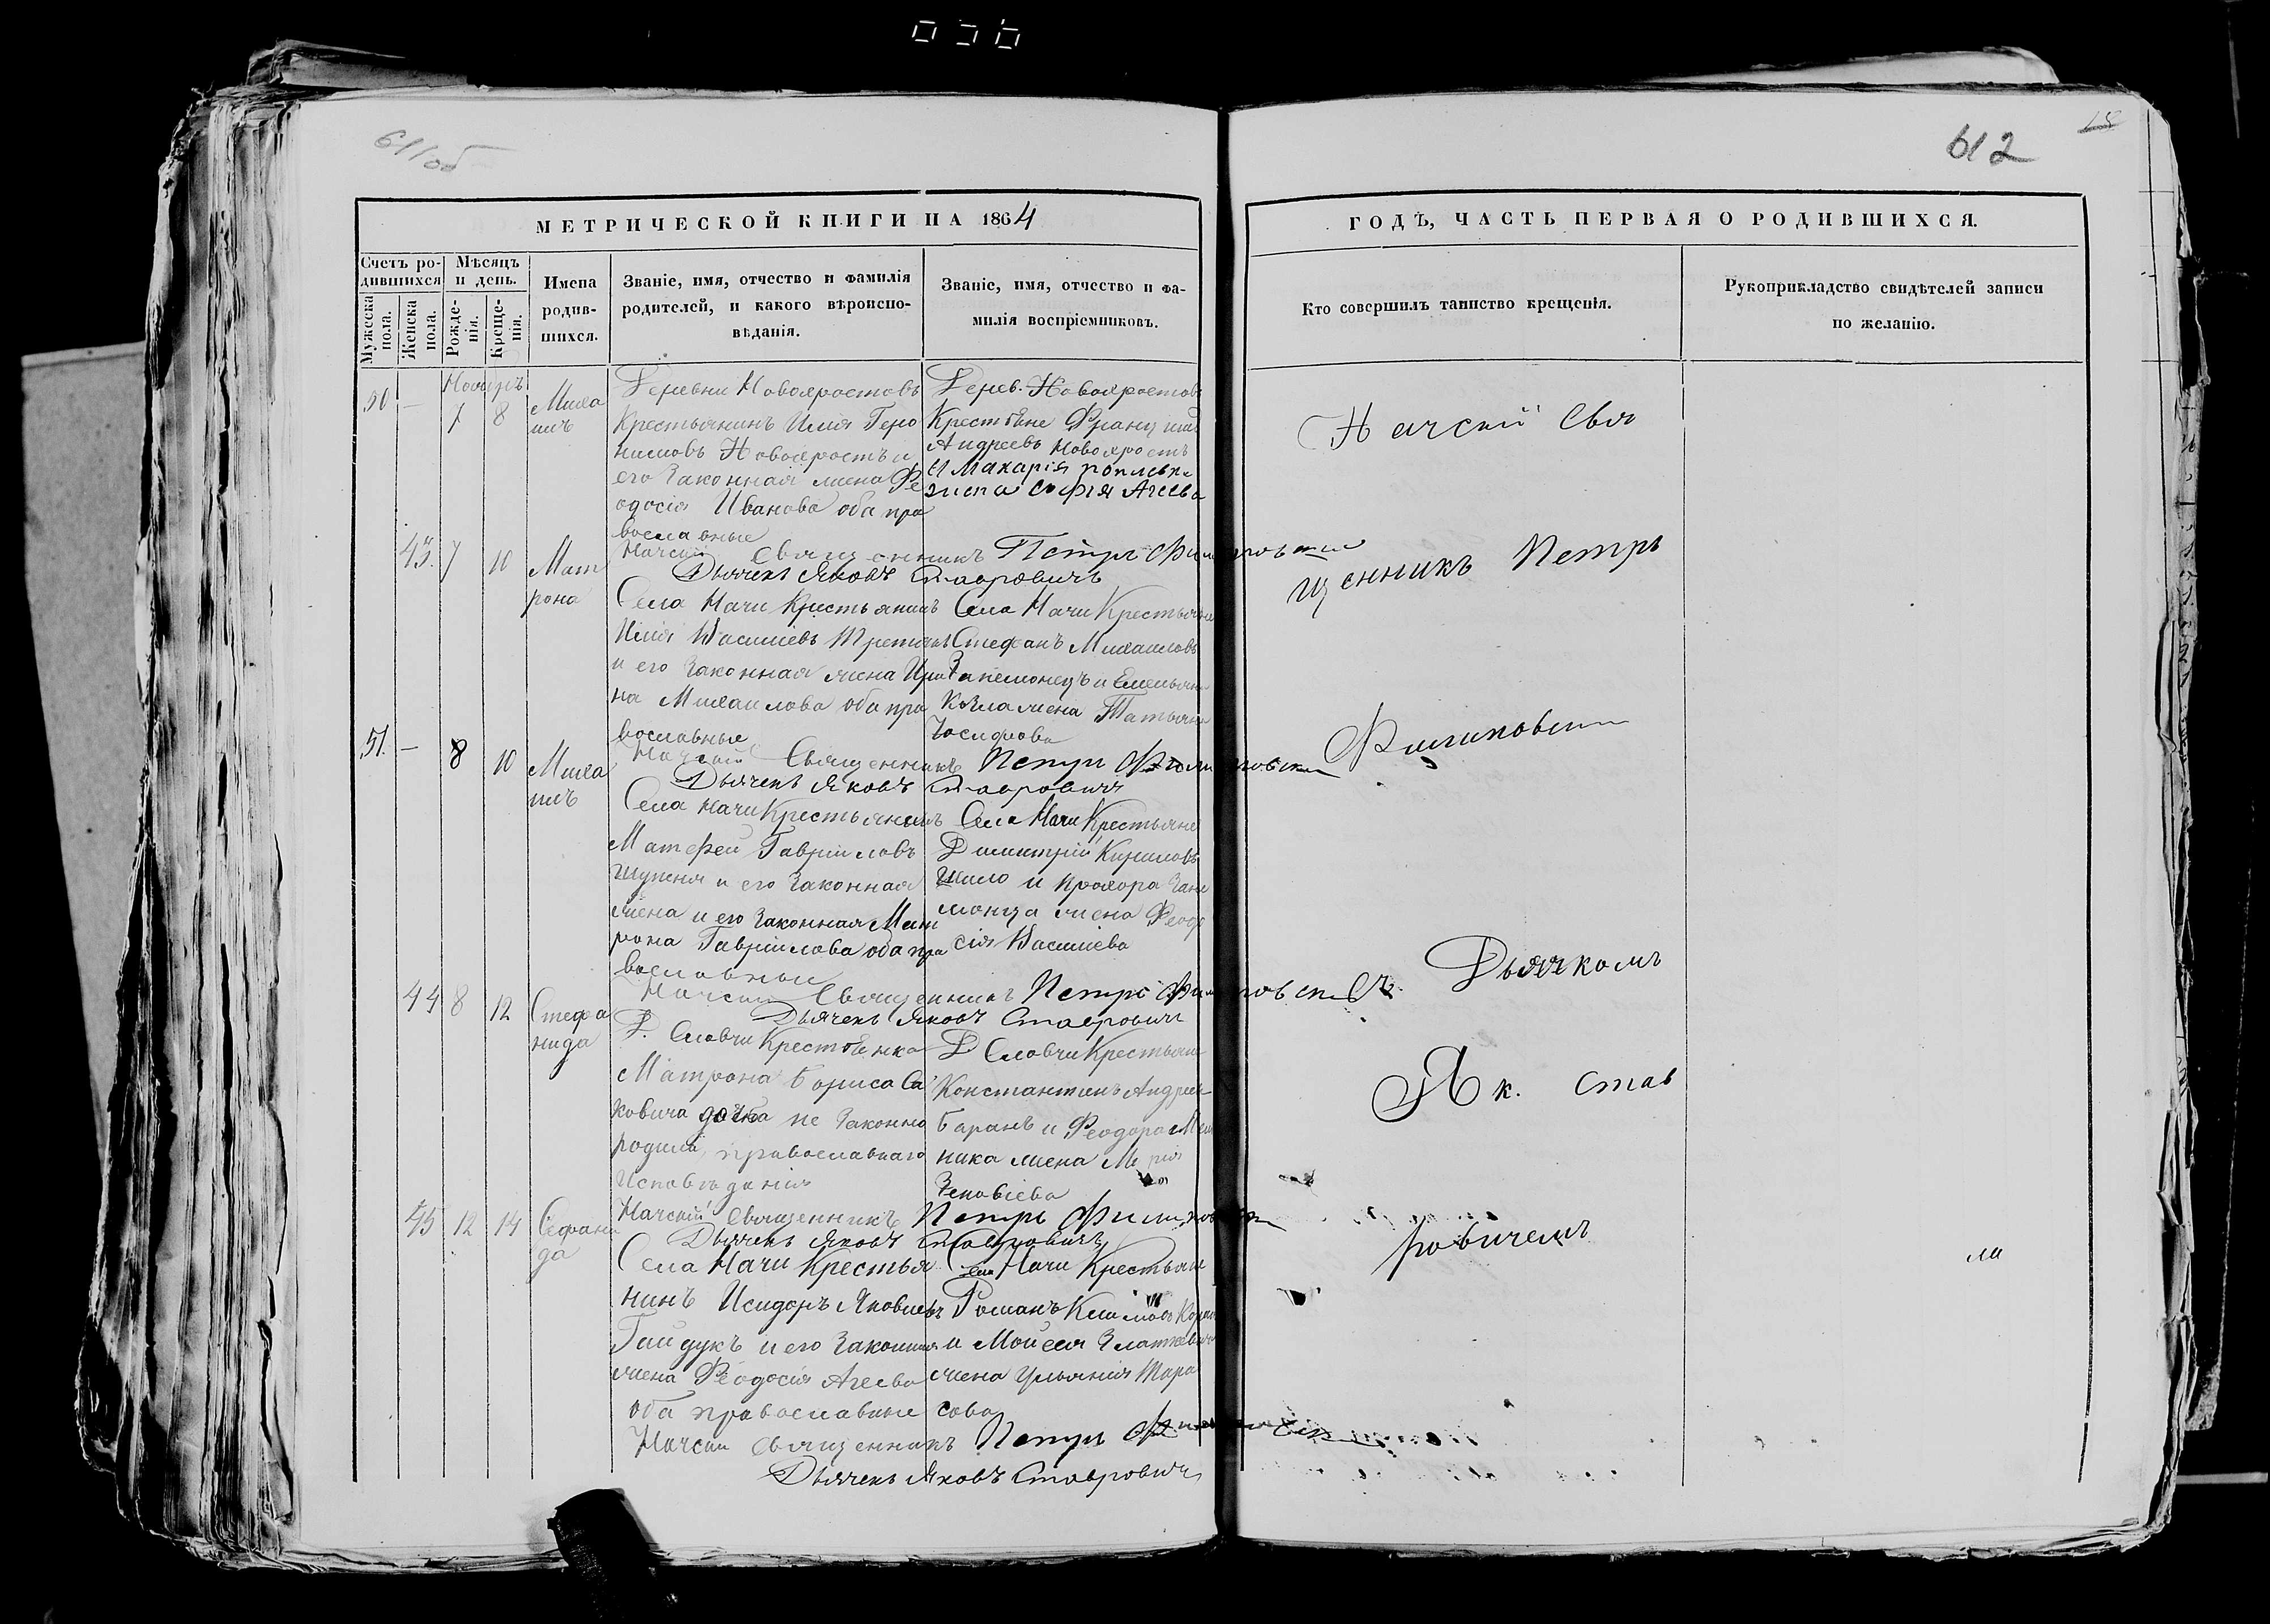 611об
612
18
МЕТРИЧЕСКОЙ КНИГИ НА 1864
ГОДЪ, ЧАСТЬ ПЕРВАЯ О РОДИВШИХСЯ.
Счетъ ро-
дившихся
Мужеска
пола.
Женска
пола.
Мѣсяцъ
и день.
Рожде-
нія.
Креще-
нія.
Имена
родив-
шихся.
Званіе, имя, отчество и фамилія
родителей, и какого вѣроиспо-
вѣданія.
Званіе, имя, отчество и фа-
милія воспріемниковъ.
Кто совершилъ таинство крещенія.
Рукоприкладство свидѣтелей записи
по желанію.
Ноябрь
50 — 7 8
Миха
илъ
Деревни Новохростовъ
Крестьянинъ Илія Геро
нимовъ Новохростъ и
его Законная жена Фе
одосія Иванова оба пра
вославные
Дерев. Новохростовъ
Крестьяне
Андреевъ Новохростъ
и Макарія
жена Софія Агеева
Начскій Священникъ Петръ
Дьячекъ Яковъ Ставровичъ
43. 7 10
Мат
рона
Села Начи Крестьянинъ
Илія Василіевъ
и его Законная жена Ири
на Михаилова оба пра
вославные
Села Начи Крестьяне
Стефанъ Михаиловъ
жена Татьяна
Іосифова
Начскій Священникъ Петръ
Дьячекъ Яковъ Ставровичъ
51. — 8 10
Миха
илъ
Села Начи Крестьянинъ
Матфей Гавріиловъ
и его Законная
жена и его Законная Мат
рона Гавріилова оба пра
вославные
Села Начи Крестьяне
Димитрій Кириловъ
Шило и Прохора Зане
монца жена Феодо
сія Василіева
Начскій Священникъ Петръ
Дьячекъ Яковъ Ставровичъ
44 8 12
Стефа
нида
Д. Еловчи Крестьянка
Матрона Бориса Са
ковича дочка не Законно
родила, православнаго
Исповѣданія
Д Еловчи Крестьяне
Константинъ Андреевъ
Баранъ и Феодора
ника жена
Зеновіева
Начскій Священникъ Петръ
Дьячекъ Яковъ Ставровичъ
45 12 14
Села Начи Крестья
нинъ Исидоръ Яковлевъ
Гайдукъ и его Законная
жена Феодосія Агеева
оба православные
Села Начи Крестьяне
Романъ
и Мойсея
жена Ульянія Тара
сова
Начскій Священникъ Петръ
Дьячекъ Яковъ Ставровичъ
Начскій Свя
щенникъ Петръ
Дьячкомъ
Як. Став
ровичемъ